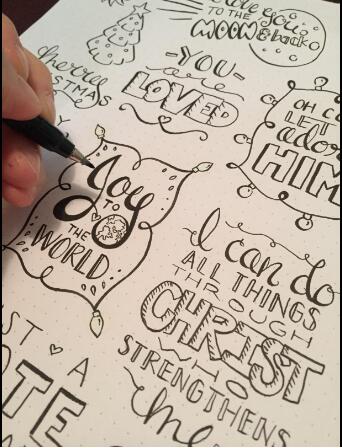 you
TO THE
MOON & back
-YOU-
LOVED
OH CO
LET
ador
HIM
Joy
TO
THE
WORLD
I can do
ALL THINGS
THROUGH
CHRIST
WHO
STRENGTHENS
me
ST A
OTE